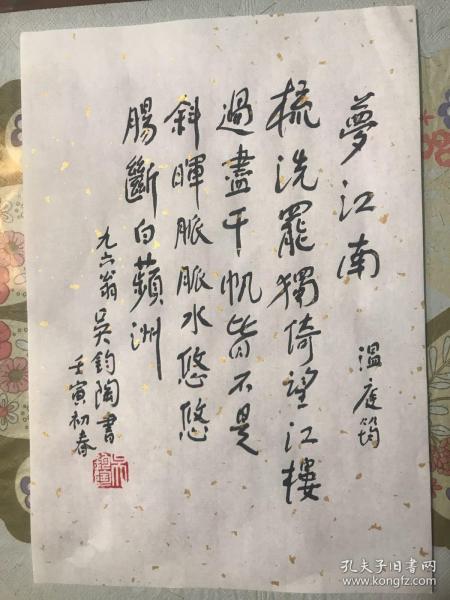 夢江南
溫庭筠
梳洗罷獨倚望江樓
過盡千帆皆不是
斜暉脈脈水悠悠
腸斷白蘋洲
九六翁吳鈞陶書
壬寅初春
孔夫子旧书网
www.kongfz.com